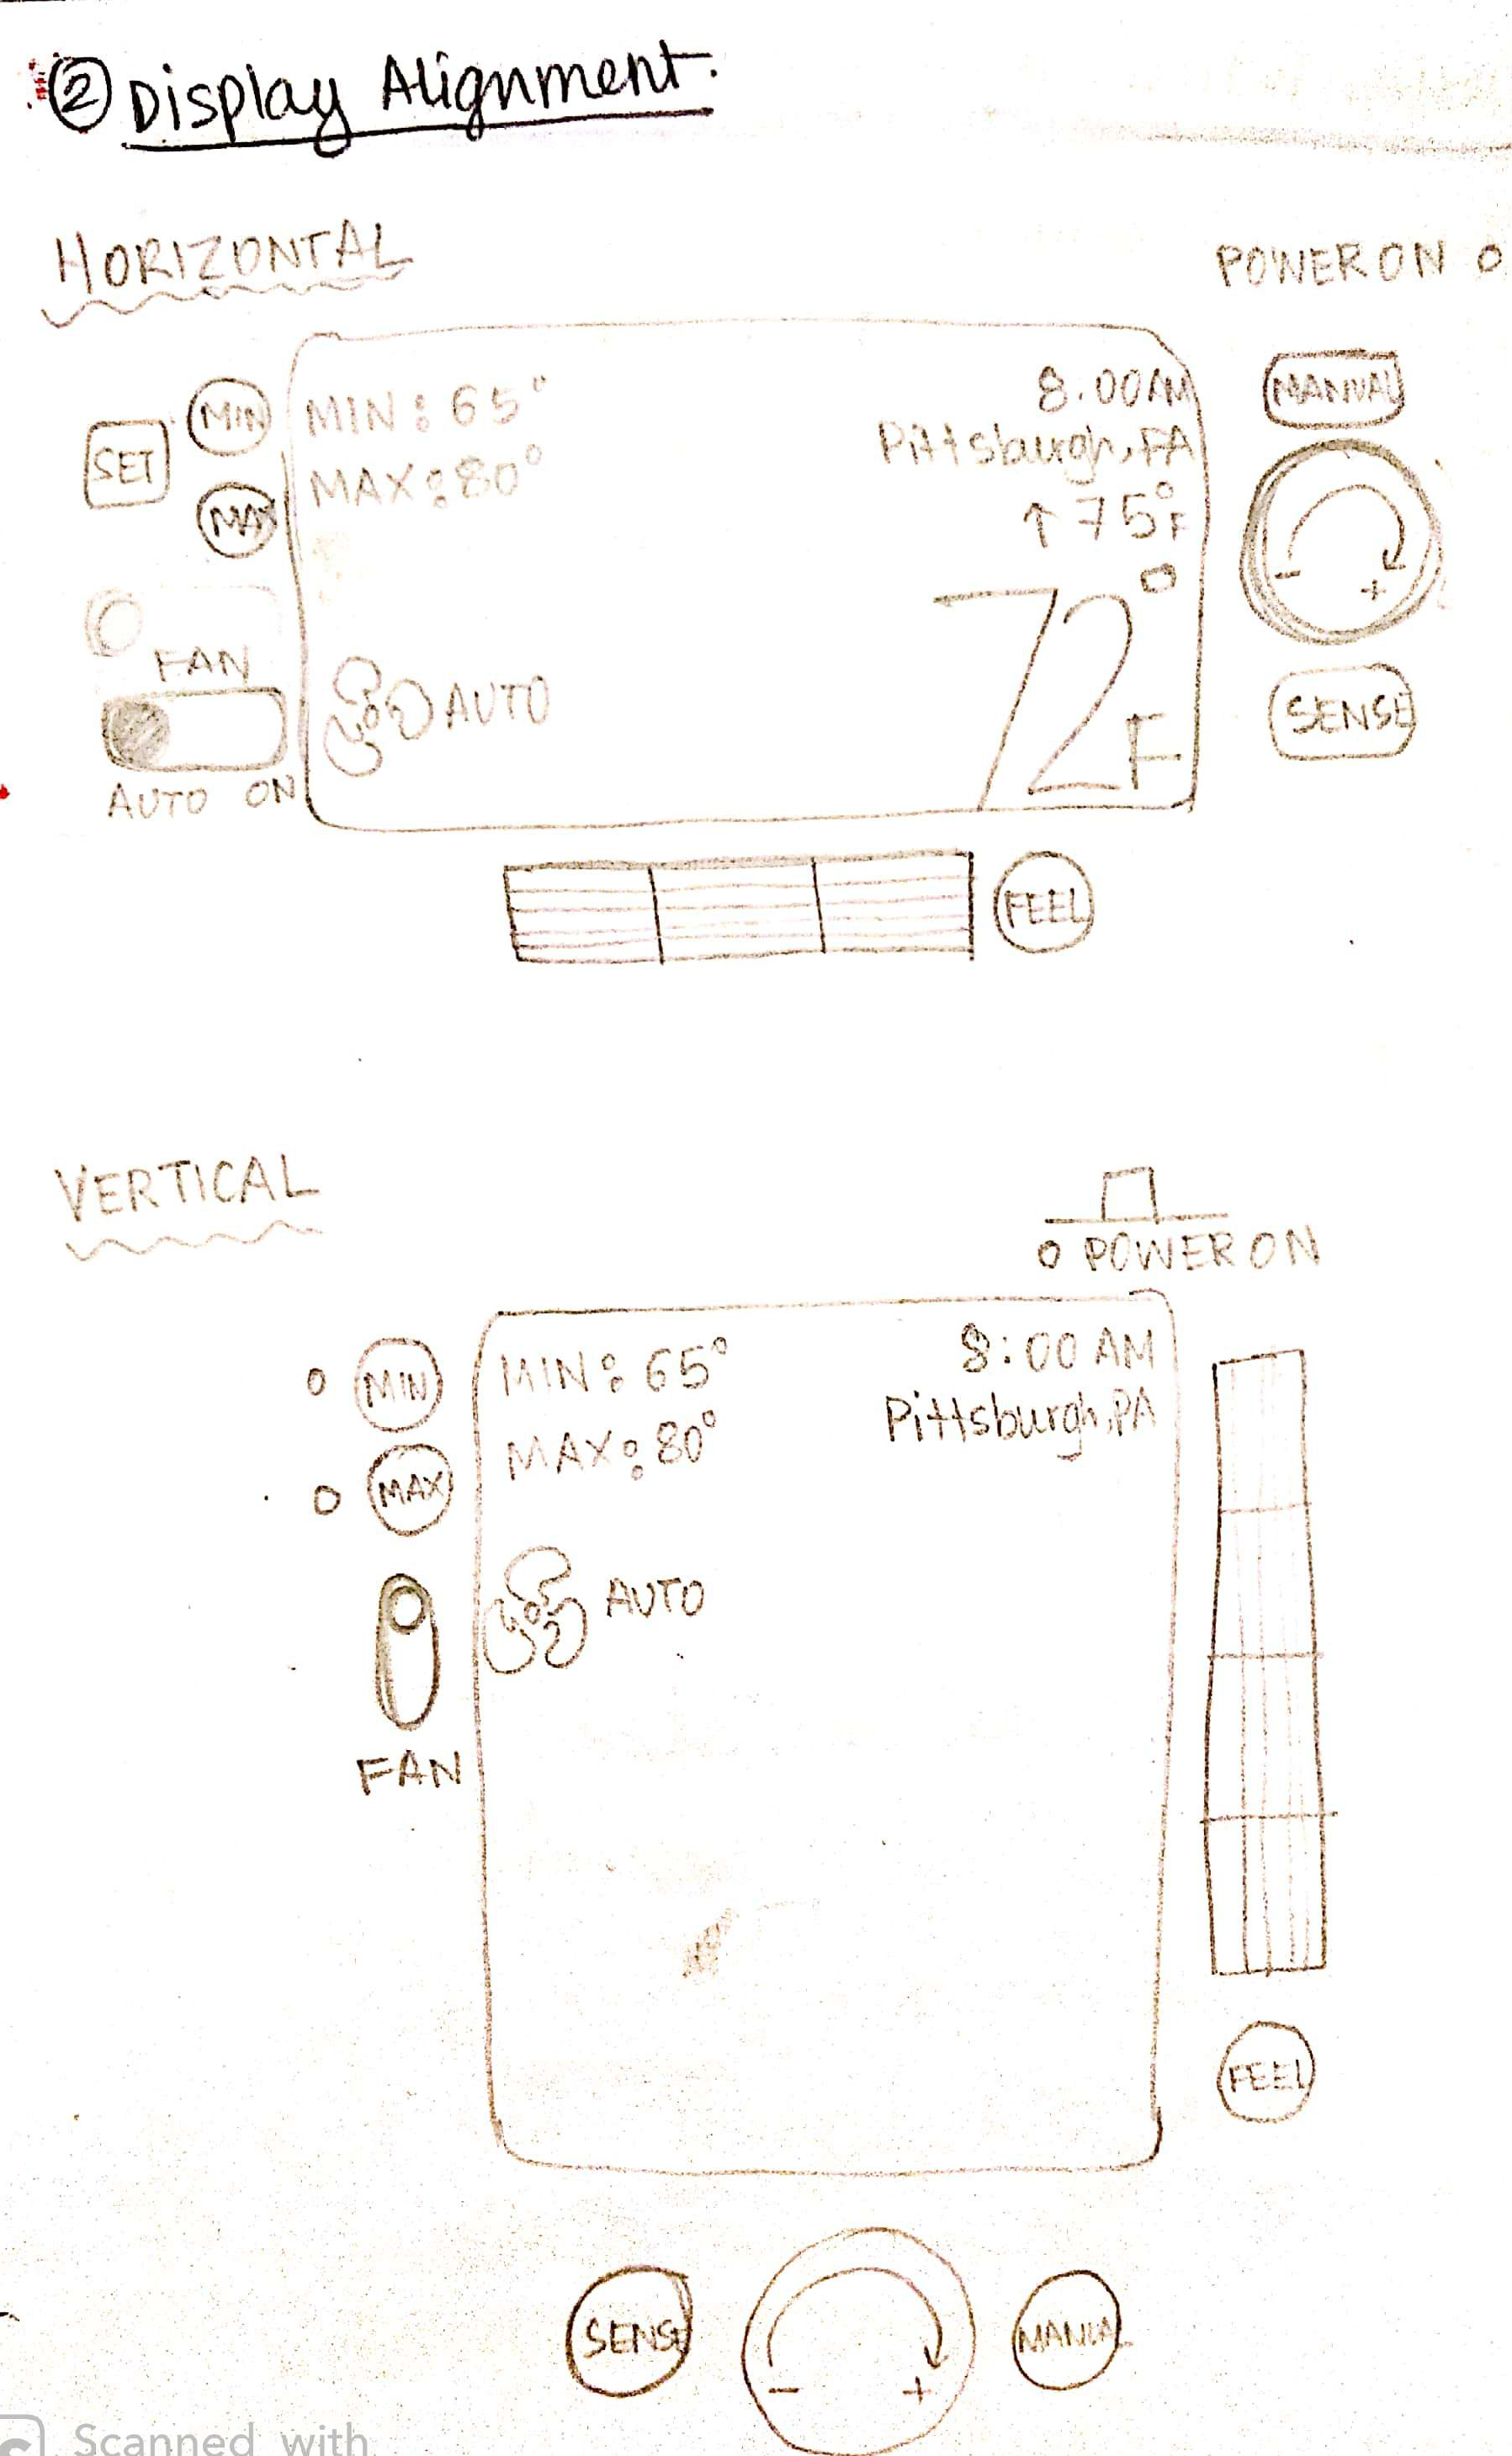 ② Display Alignment.
HORIZONTAL
POWER ON
SET
MIN
MAX
MIN: 65°
MAX: 80°
8.00AM
Pittsburgh, PA
↑ 75°F
72°F
MANUAL
- +
SENSE
FAN
AUTO ON
AUTO
FEEL
VERTICAL
POWER ON
MIN
MAX
MIN: 65°
MAX: 80°
8:00 AM
Pittsburgh, PA
AUTO
FAN
FEEL
SENSE
- +
MANUAL
Scanned with